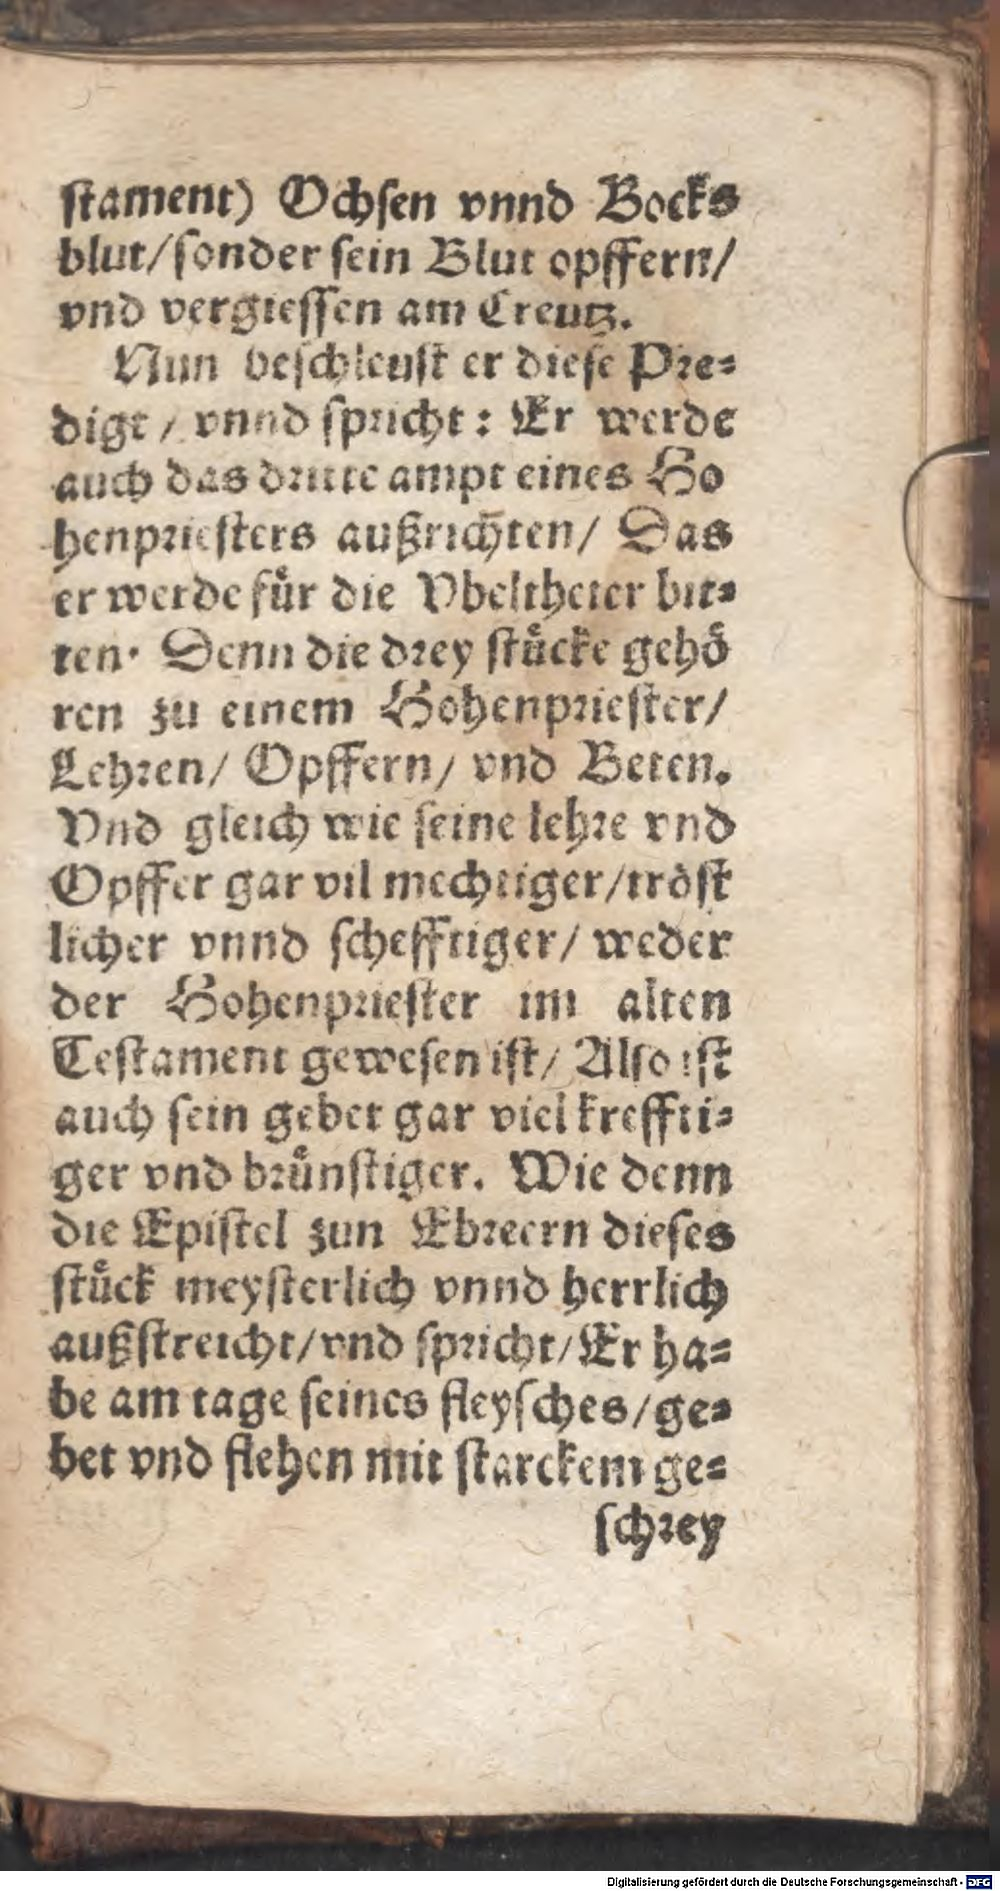 stament) Ochsen vnnd Bocks
blut/sonder sein Blut opffern/
vnd vergiessen am Creutz.
Nun beschleust er diese Pre⸗
digt / vnnd spricht: Er werde
auch das dritte ampt eines Ho
henpriesters außrich̄ten/ Das
er werde fuͤr die Vbeltheter bit⸗
ten· Denn die drey stuͤcke gehoͤ
ren zu einem Hohenpriester/
Lehren/ Opffern/ vnd Beten.
Vnd gleich wie seine lehre vnd
Opffer gar vil mechtiger/troͤst
licher vnnd schefftiger/ weder
der Hohenpriester im alten
Testament gewesen ist/ Also ist
auch sein gebet gar viel kreffti⸗
ger vnd bruͤnstiger. Wie denn
die Epistel zun Ebreern dieses
stuͤck meysterlich vnnd herrlich
außstreicht/vnd spricht/Er ha⸗
be am tage seines fleysches/ge⸗
bet vnd flehen mit starckem ge⸗
schrey
Digitalisierung gefördert durch die Deutsche Forschungsgemeinschaft - DFG